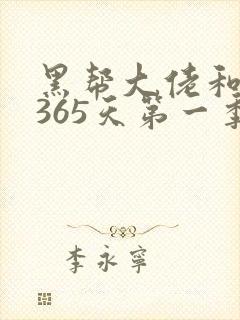 黑帮大佬和
365天第一季
李永寧